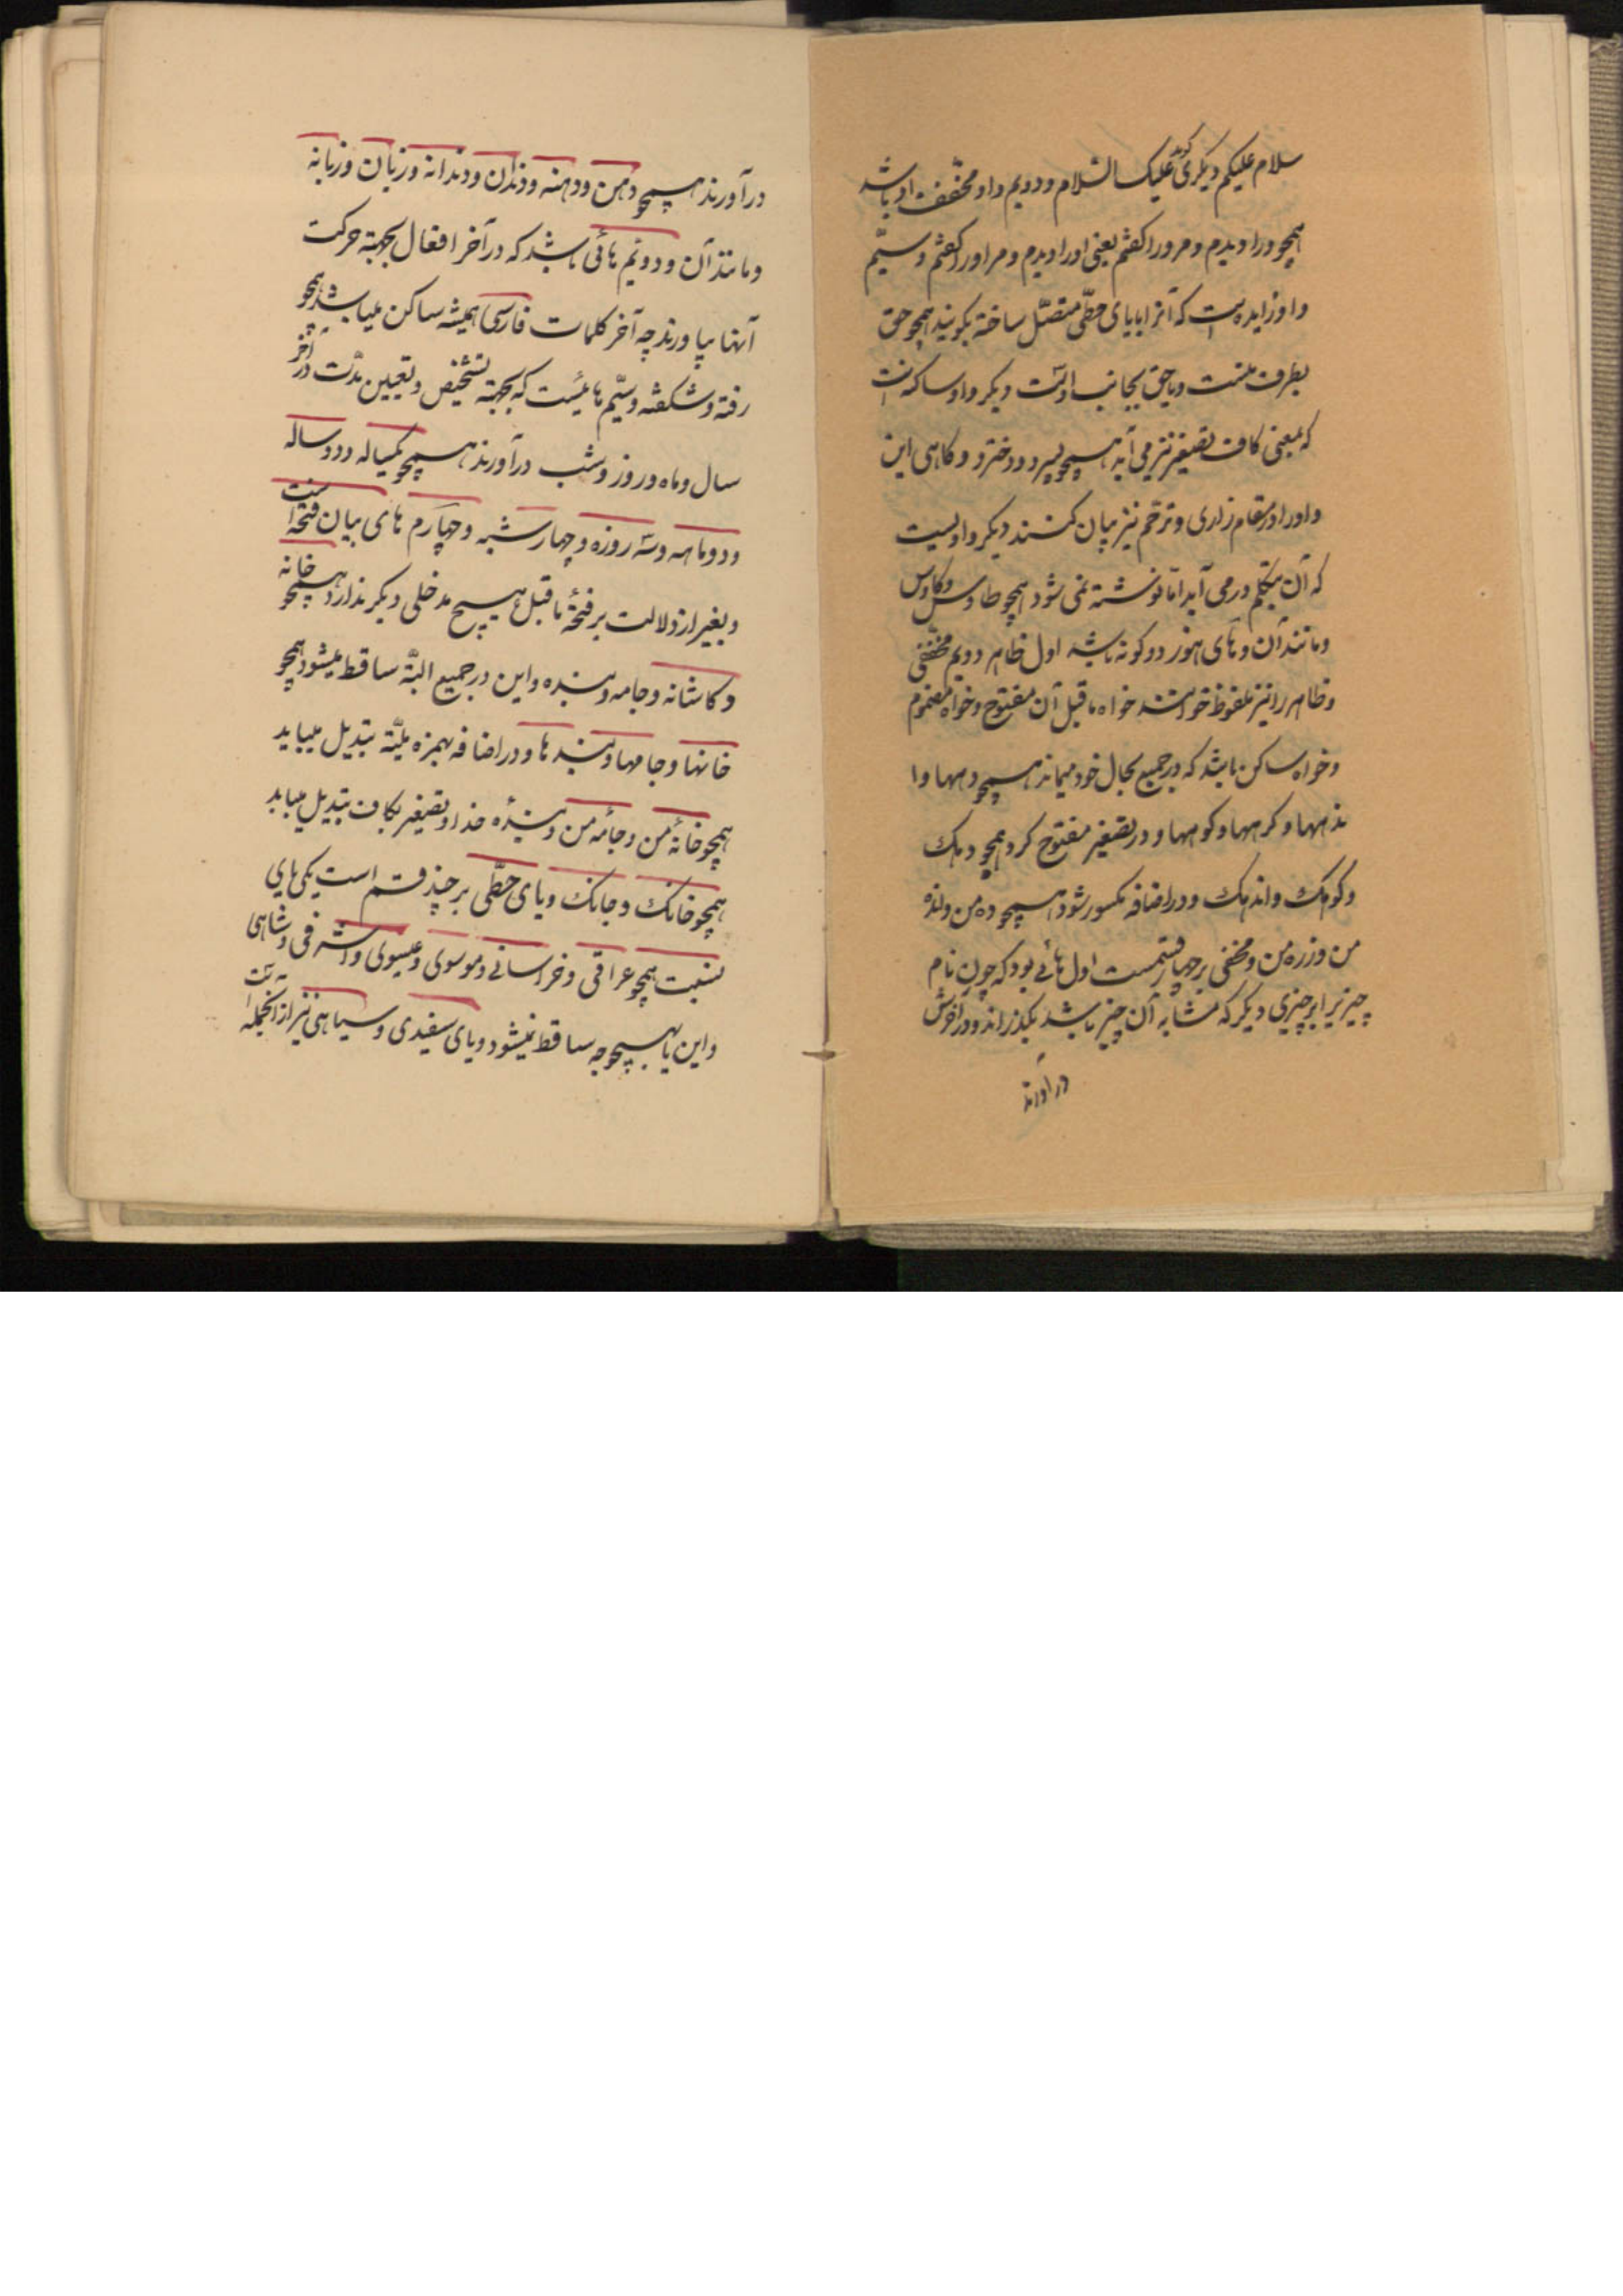 سلام علیکم دیگری گوید علیک السلام و دویم واو مخفف او باشد
همچو ورا دیدم و مرورا گفتم یعنی اورا دیدم و مر اورا گفتم و سیّم
واو زایده است که آنرا با یای حطّی متصّل ساخته بگویند همچو حق
بطرف منست و یا حق بجانب اوست دیگر واو ساکن است
که بمعنی کاف تصغیر نیز می آید همچو پسرو و دخترو و کاهی این
واو را در مقام زاری و ترحّم نیز بیان کنند دیگر واویست
که آن بتکلم در می آید امّا نوشته نمی شود همچو طاوس و کاوس
و مانند آن و های هوز دو کونه باشد اول ظاهر دویم مخفی
و ظاهر را نیز ملفوظ خوانند خواه ماقبل آن مفتوح و خواه مضموم
و خواه ساکن باشد که در جمیع بحال خود میماند همچو دهها و ا
ندهها و کرهها و کوهها و در تصغیر مفتوح کردد همچو دهک
و کوهک و اندهک و در اضافه مکسور شود همچو ده من و انده
من و زره من و مخفی بر چهار قسمست اول هائی بود که چون نام
چیزیرا بر چیزی دیگر که مشابه آن چیز باشد بگذرانند و در آخرش
در آورند
در آورند همچو دهن و دهنه و دندان و دندانه و زبان و زبانه
و مانند آن و دویم هائی باشد که در آخر افعال بجهتة حرکت
آنها بیاورند چه آخر کلمات فارسی همیشه ساکن میباشد همچو
رفته و شکفته و سیّم هائیست که بجهتة تشخیص و تعیین مدّت در آخر
سال و ماه و روز و شب در آورند همچو یکساله و دوساله
و دوماهه و سه روزه و چهار شبه و چهارم های بیان فتحه است
و بغیر از دلالت بر فتحهٔ ماقبل هیچ مدخلی دیگر ندارد همچو خانه
و کاشانه و جامه و بنده و این در جمیع البتّه ساقط میشود همچو
خانها و جامها و بندها و در اضافه بهمزه ملیّنه تبدیل مییابد
همچو خانهٔ من و جامهٔ من و بندهٔ خدا و در تصغیر بکاف تبدیل مییابد
همچو خانک و جامک و یای حطّی بر چند قسم است یکی یای
نسبت همچو عراقی و خراسانی و موسوی و عیسوی و اشرفی و شاهی
و این یا بهیچوجه ساقط نمیشود و یای سفیدی و سیاهی نیز از انجمله است